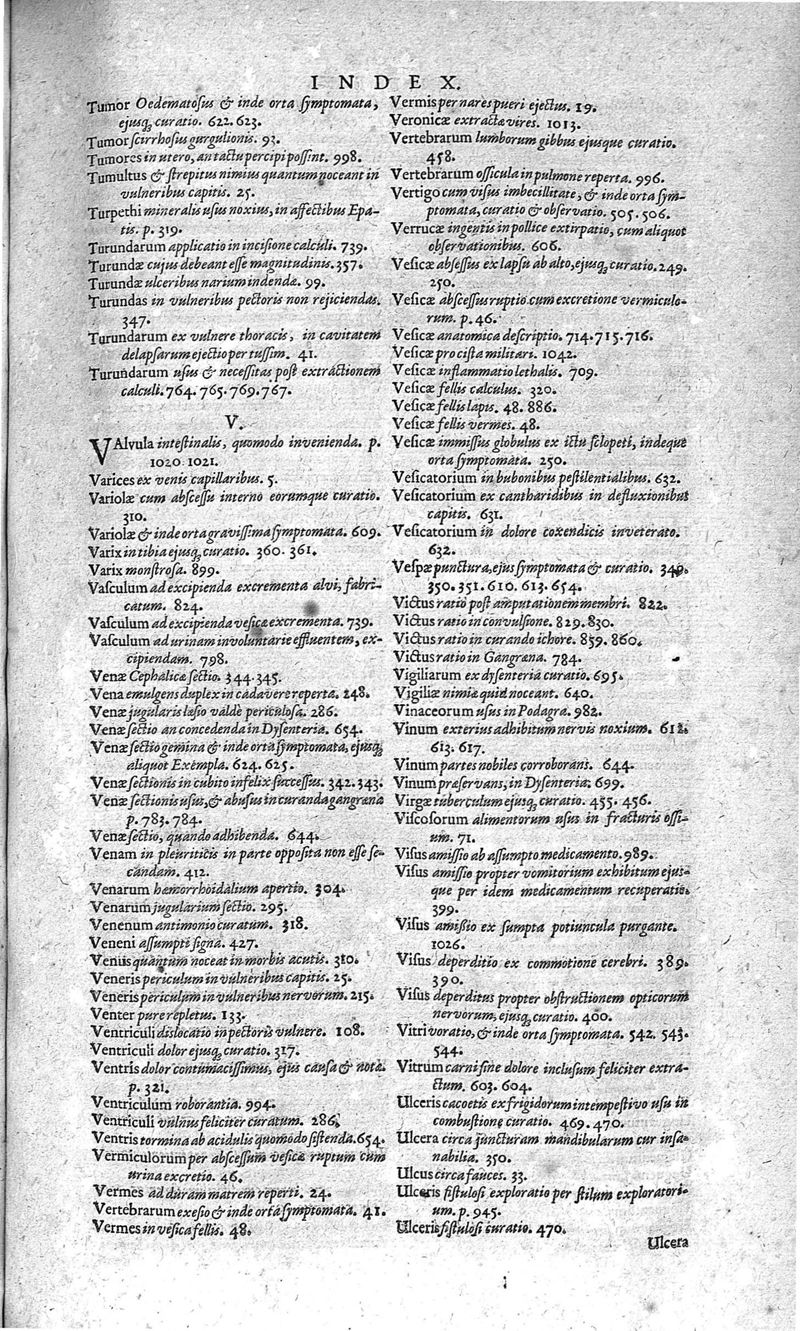 INDEX.
Tumor Oedematoſus & inde orta ſymptomata,
ejusq́; curatio. 622. 623.
Tumor ſcirrhoſus gurgulionis. 93.
Tumores in utero, an tactu percipi poſſint. 998.
Tumultus & ſtrepitus nimius quantum noceant in
vulneribus capitis. 25.
Turpethi mineralis uſus noxius, in affectibus Epa-
tis. p. 319.
Turundarum applicatio in inciſione calculi. 739.
Turundæ cujus debeant eſſe magnitudinis. 357.
Turundæ ulceribus narium indendæ. 99.
Turundas in vulneribus pectoris non rejiciendas.
347.
Turundarum ex vulnere thoracis, in cavitatem
delapſarum ejectio per tuſſim. 41.
Turundarum uſus & neceſſitas poſt extractionem
calculi. 764. 765. 769. 767.
V.
VAlvula inteſtinalis, quomodo invenienda. p.
1020. 1021.
Varices ex venis capillaribus. 5.
Variolæ cum abſceſſu interno eorumque curatio.
310.
Variolæ & inde orta graviſſima ſymptomata. 609.
Varix in tibia ejusq́; curatio. 360. 361.
Varix monſtroſa. 899.
Vasculum ad excipienda excrementa alvi, fabri-
catum. 824.
Vaſculum ad excipienda veſicæ excrementa. 739.
Vaſculum ad urinam involuntarie effluentem, ex-
cipiendam. 798.
Venæ Cephalicæ ſectio. 344. 345.
Vena emulgens duplex in cadavere reperta. 248.
Venæ jugularis læſio valdè periculoſa. 286.
Venæ ſectio an concedenda in Dyſenteria. 654.
Venæ ſectio gemina & inde orta ſymptomata, ejusq́;
aliquot Exempla. 624. 625.
Venæ ſectionis in cubito infelix ſucceſſus. 342. 343.
Venæ ſectionis uſus, & abuſus in curanda gangræna
p. 783. 784.
Venæ ſectio, quando adhibenda. 644.
Venam in pleuriticis in parte oppoſita non eſſe ſe-
candam. 412.
Venarum hæmorrhoidalium apertio. 304.
Venarum jugularium ſectio. 295.
Venenum antimonio curatum. 318.
Veneni aſſumpti ſigna. 427.
Venus quantum noceat in morbis acutis. 310.
Veneris periculum in vulneribus capitis. 25.
Veneris periculum in vulneribus nervorum. 215.
Venter pure repletus. 133.
Ventriculi dislocatio in pectoris vulnere. 108.
Ventriculi dolor ejusq́; curatio. 317.
Ventris dolor contumaciſſimus, ejus cauſa & nota.
p. 321.
Ventriculum roborantia. 994.
Ventriculi vulnus feliciter curatum. 286.
Ventris tormina ab acidulis quomodo ſiſtenda. 654.
Vermiculorum per abſceſſum veſicæ ruptum cum
urina excretio. 46.
Vermes ad duram matrem reperti. 24.
Vertebrarum exeſio & inde orta ſymptomata. 41.
Vermes in veſica fellis. 48.
Vermis per nares pueri ejectus. 19.
Veronicæ extractæ vires. 1013.
Vertebrarum lumborum gibbus ejusque curatio.
458.
Vertebrarum oſſicula in pulmone reperta. 996.
Vertigo cum viſus imbecillitate, & inde orta ſym-
ptomata, curatio & obſervatio. 505. 506.
Verrucæ ingentis in pollice extirpatio, cum aliquot
obſervationibus. 606.
Veſicæ abſeſſus ex lapſu ab alto, ejusq́; curatio. 249.
250.
Veſicæ abſceſſus ruptio cum excretione vermiculo-
rum. p. 46.
Veſicæ anatomica deſcriptio. 714. 715. 716.
Veſicæ pro ciſta militari. 1042.
Veſicæ inflammatio lethalis. 709.
Veſicæ fellis calculus. 320.
Veſicæ fellis lapis. 48. 886.
Veſicæ fellis vermes. 48.
Veſicæ immiſſus globulus ex ictu ſclopeti, indeque
orta ſymptomata. 250.
Veſicatorium in bubonibus peſtilentialibus. 632.
Veſicatorium ex cantharidibus in defluxionibus
capitis. 631.
Veſicatorium in dolore coxendicis inveterato.
632.
Veſpæ punctura, ejus ſymptomata & curatio. 349.
350. 351. 610. 613. 654.
Victus ratio poſt amputationem membri. 822.
Victus ratio in convulſione. 829. 830.
Victus ratio in curando ichore. 859. 860.
Victus ratio in Gangræna. 784.
Vigiliarum ex dyſenteria curatio. 695.
Vigiliæ nimiæ quid noceant. 640.
Vinaceorum uſus in Podagra. 982.
Vinum exterius adhibitum nervis noxium. 612.
613. 617.
Vinum partes nobiles corroborans. 644.
Vinum præſervans, in Dyſenteria. 699.
Virgæ tuberculum ejusq́; curatio. 455. 456.
Viſcoſorum alimentorum uſus in fracturis oſſi-
um. 71.
Viſus amiſſio ab aſſumpto medicamento. 989.
Viſus amiſſio propter vomitorium exhibitum ejus-
que per idem medicamentum recuperatio.
399.
Viſus amiſſio ex ſumpta potiuncula purgante.
1026.
Viſus deperditio ex commotione cerebri. 389.
390.
Viſus deperditus propter obſtructionem opticorum
nervorum, ejusq́; curatio. 400.
Vitri voratio, & inde orta ſymptomata. 542. 543.
544.
Vitrum carni ſine dolore incluſum feliciter extra-
ctum. 603. 604.
Ulceris cacoetis ex frigidorum intempeſtivo uſu in
combuſtione curatio. 469. 470.
Ulcera circa juncturam mandibularum cur inſa-
nabilia. 350.
Ulcus circa fauces. 33.
Ulceris fiſtuloſi exploratio per ſtilum exploratori-
um. p. 945.
Ulceris fiſtuloſi curatio. 470.
Ulcera